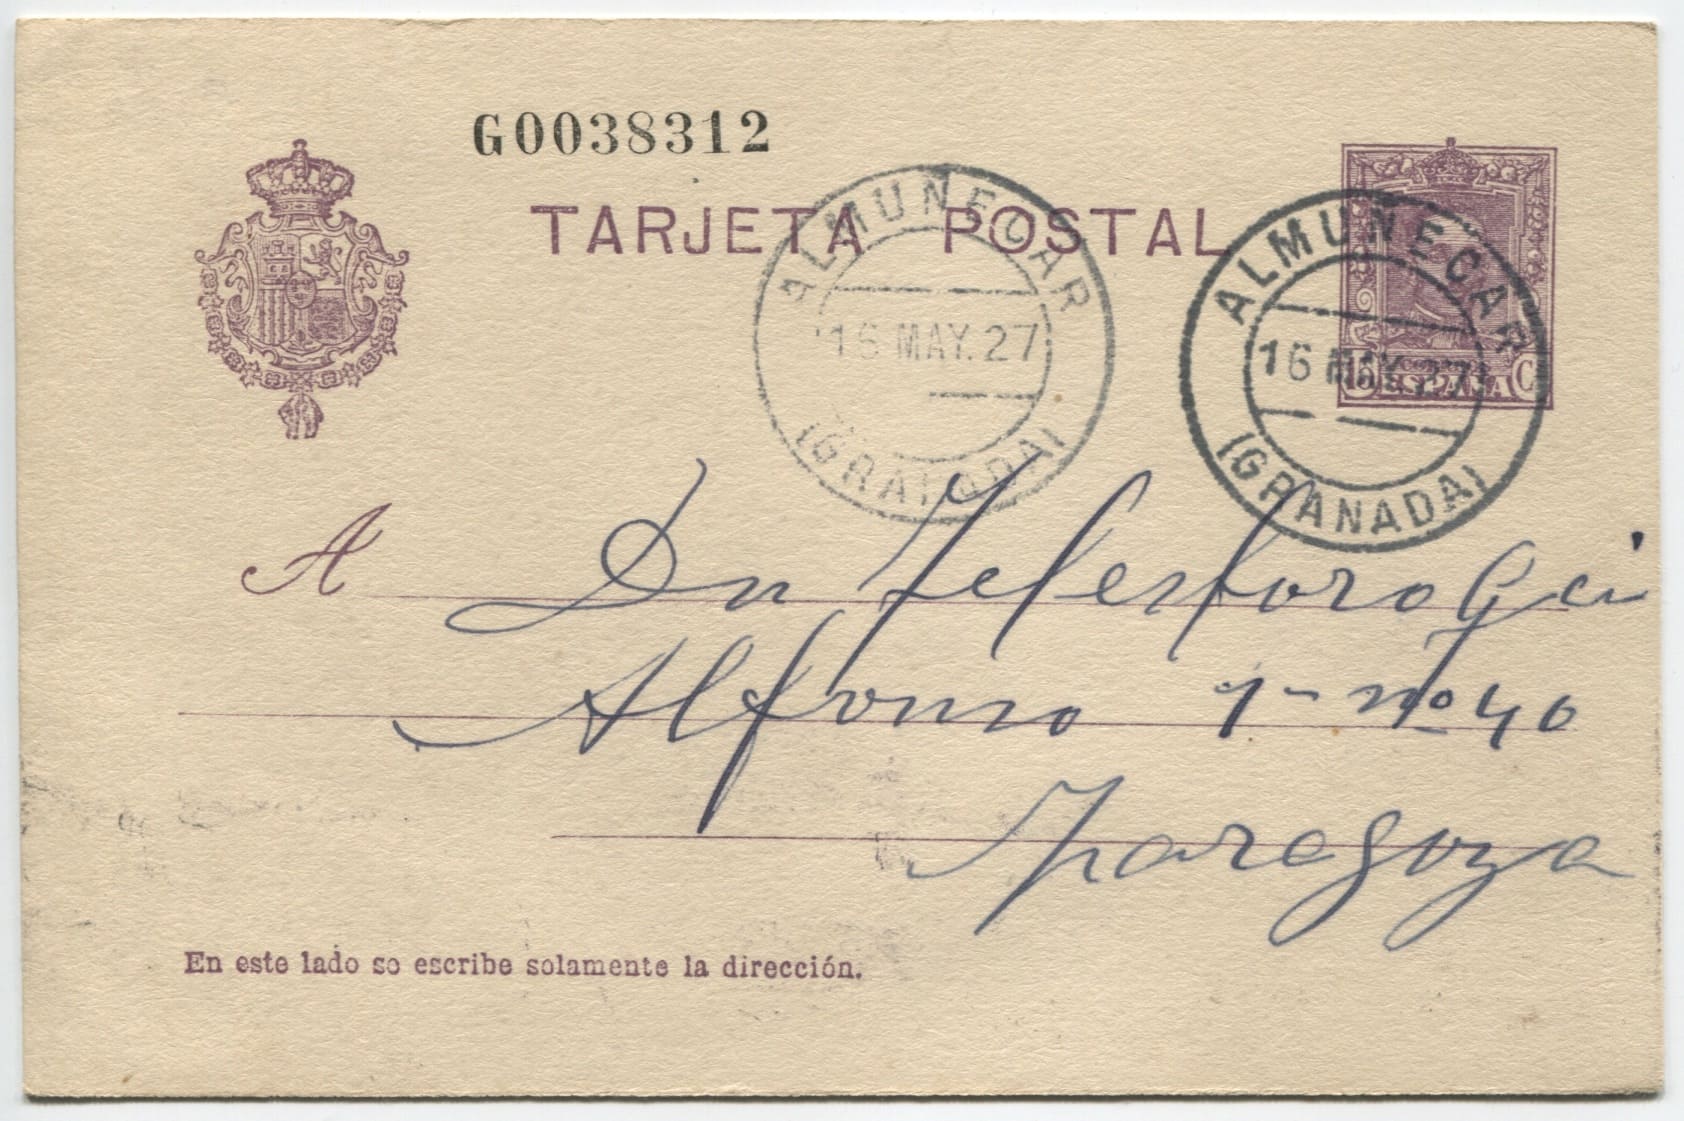 G0038312
TARJETA POSTAL
ALMUÑECAR
16 MAY. 27
(GRANADA)
ALMUÑECAR
16 MAY. 27
(GRANADA)
15 ESPAÑA Cs
A Dn Telesforo Gci
Alfonso 1- nº 40
Zaragoza
En este lado se escribe solamente la dirección.